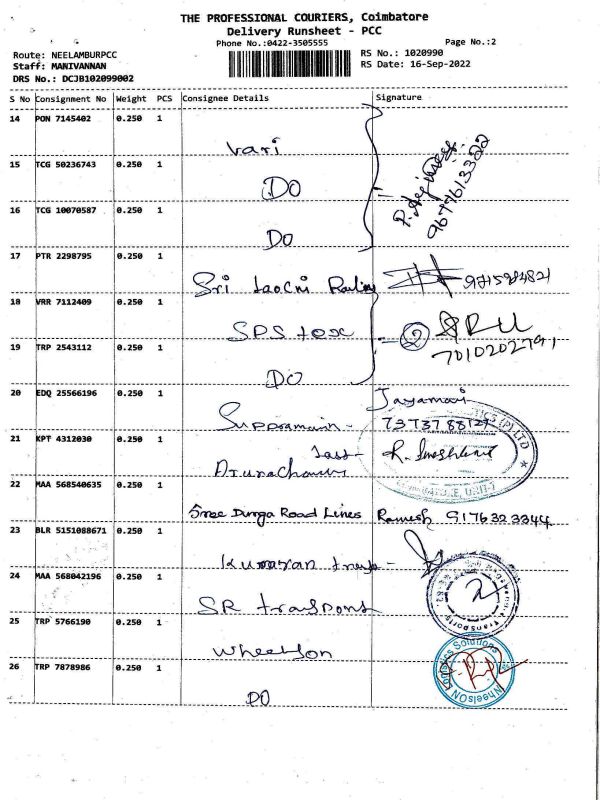 THE PROFESSIONAL COURIERS, Coimbatore
Delivery Runsheet - PCC
Phone No.:0422-3505555 Page No.:2
Route: NEELAMBURPCC RS No.: 1020990
Staff: MANIVANNAN RS Date: 16-Sep-2022
DRS No.: DCJB102099002
S No Consignment No Weight PCS Consignee Details Signature
14 PON 7145402 0.250 1 Vari
15 TCG 50236743 0.250 1 DO
9677613322
16 TCG 10070587 0.250 1 DO
17 PTR 2298795 0.250 1 Sri
18 VRR 7112409 0.250 1 SPS tex
② SRU
7010202791
19 TRP 2543112 0.250 1 DO
20 EDQ 25566196 0.250 1 Jayamani
21 KPT 4312030 0.250 1
22 MAA 568540635 0.250 1 Sree Durga Road Lines Ramesh 9176323344
23 BLR 5151088671 0.250 1 Kumaran
24 MAA 568042196 0.250 1 SR transport
25 TRP 5766190 0.250 1 Wheelson
26 TRP 7878986 0.250 1 DO
WheelsON Logistics Solutions